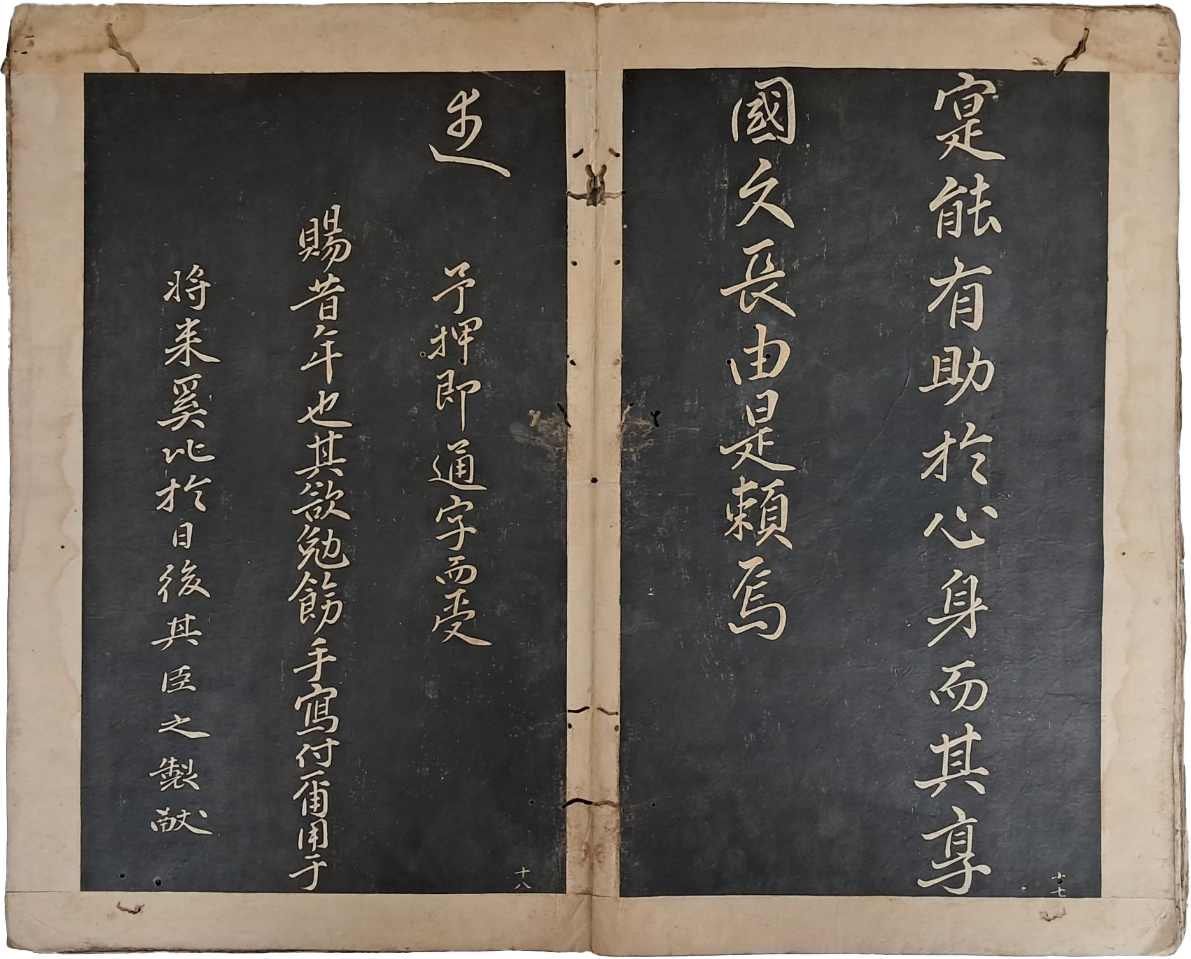 寔能有助於心身而其享
國久長由是賴焉
十七
予押即通字而受
賜昔年也其欲勉飭手寫付爾用于
将来奚比於日後其臣之製献
十八